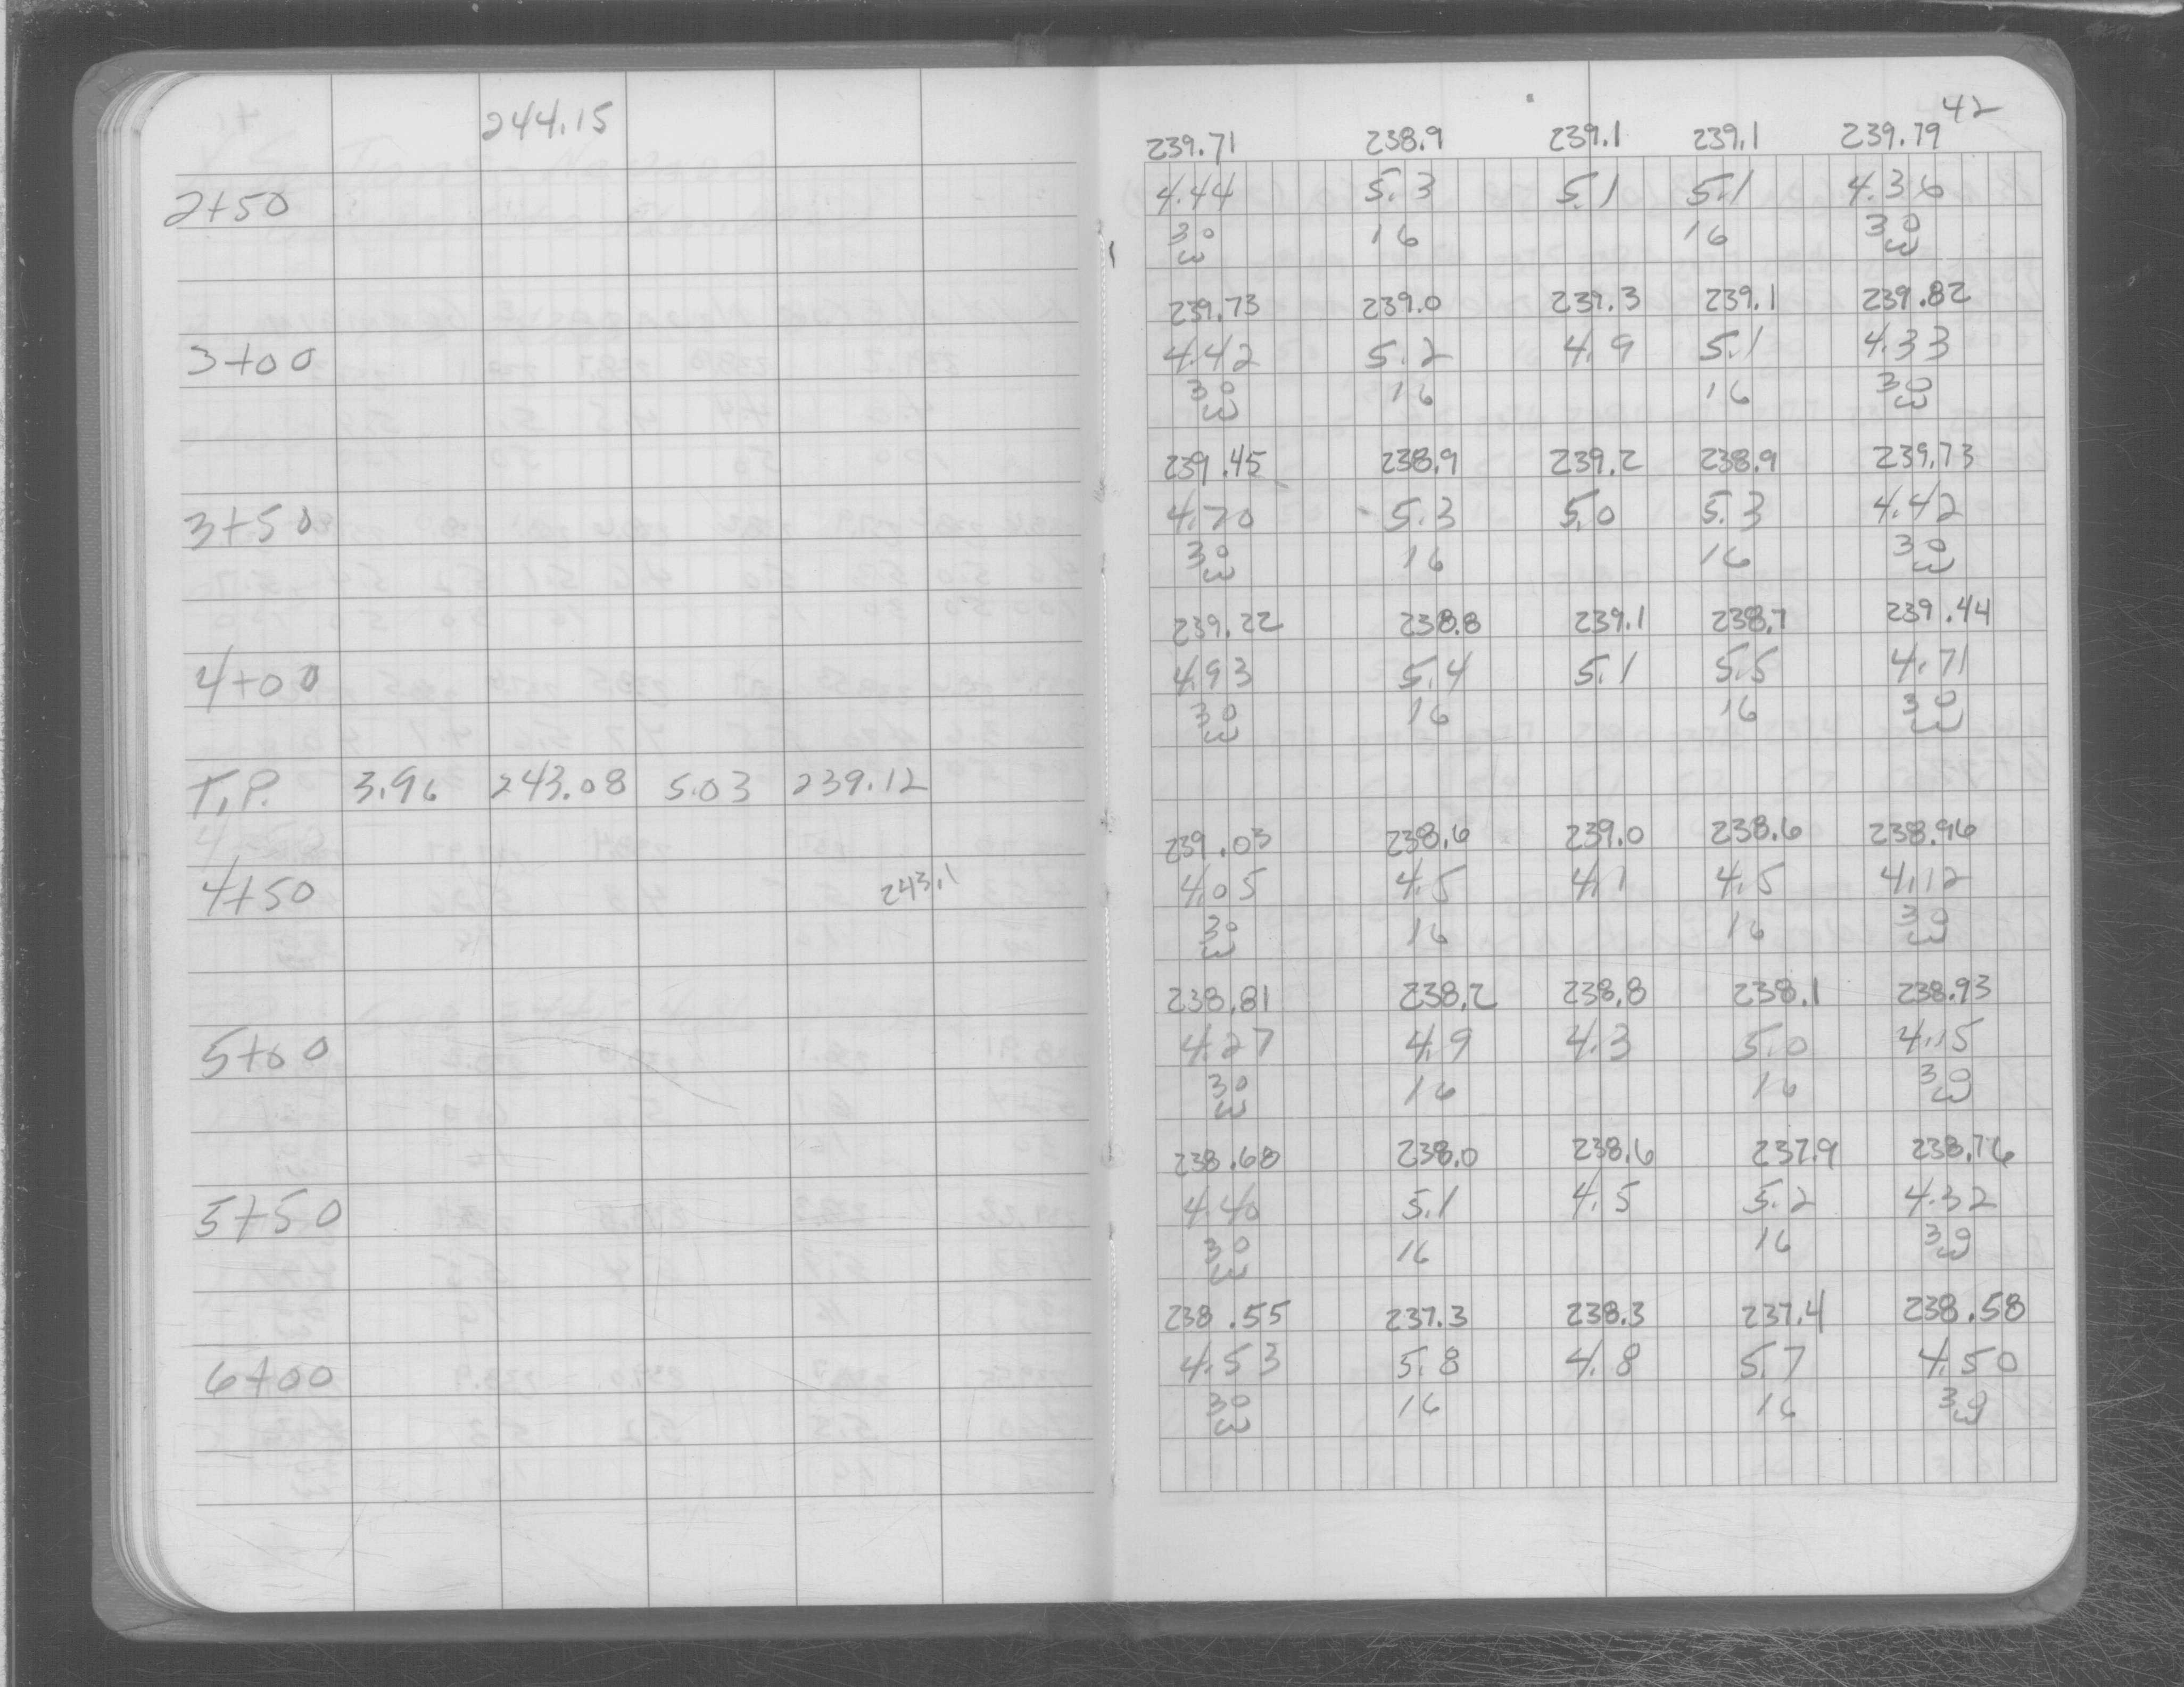 244.15
2+50
3+00
3+50
4+00
T.P. 3.96 243.08 5.03 239.12
4+50 243.1
5+00
5+50
6+00
42
239.71 238.9 239.1 239.1 239.79
4.44 5.3 5.1 5.1 4.36
30 16 16 30
239.73 239.0 239.3 239.1 239.82
4.42 5.2 4.9 5.1 4.33
30 16 16 30
239.45 238.9 239.2 238.9 239.73
4.70 5.3 5.0 5.3 4.42
30 16 16 30
239.22 238.8 239.1 238.7 239.44
4.93 5.4 5.1 5.5 4.71
30 16 16 30
239.03 238.6 239.0 238.6 238.96
4.05 4.5 4.1 4.5 4.12
30 16 16 30
238.81 238.2 238.8 238.1 238.93
4.27 4.9 4.3 5.0 4.15
30 16 16 30
238.68 238.0 238.6 237.9 238.76
4.40 5.1 4.5 5.2 4.32
30 16 16 30
238.55 237.3 238.3 237.4 238.58
4.53 5.8 4.8 5.7 4.50
30 16 16 30